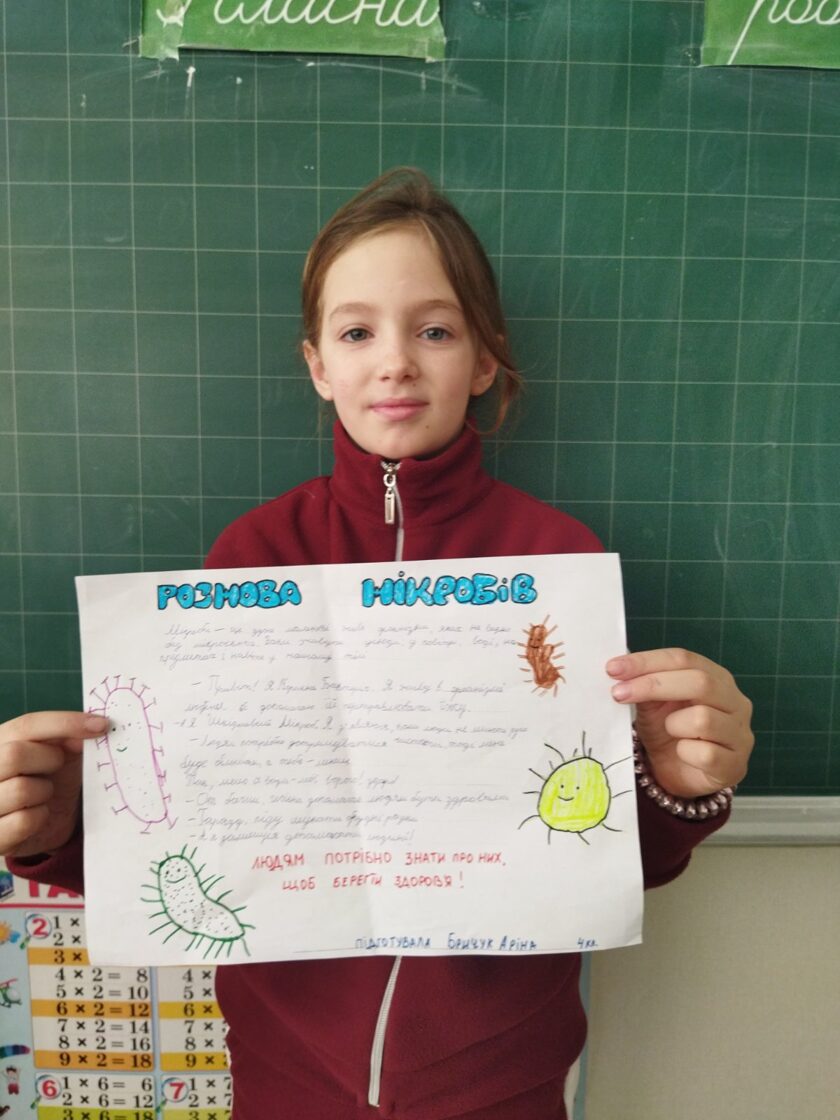 Гласна
РОЗМОВА МІКРОБІВ
Мікроби — це дуже маленькі живі організми, яких не видно
без мікроскопа. Вони живуть у повітрі, воді, на
предметах і навіть у нашому тілі
— Привіт! Я Корисна Бактерія. Я живу в організмі
людини й допомагаю їй перетравлювати їжу.
— А я Шкідливий Мікроб. Я з'являюсь, коли люди не миють руки
— Людям потрібно дотримуватися чистоти, тоді мене
буде більше, а тебе – менше.
Так, мило й вода – мої вороги!
— От бачиш, гігієна допомагає людям бути здоровими
— Гаразд, піду шукати брудні руки
— А я залишуся допомагати людині!
ЛЮДЯМ ПОТРІБНО ЗНАТИ ПРО НИХ,
ЩОБ БЕРЕГТИ ЗДОРОВ'Я!
ПІДГОТУВАЛА БРИЧУК АРІНА 4 кл.
2
1 ×
2 ×
3 ×
4 × 2 = 8
5 × 2 = 10
6 × 2 = 12
7 × 2 = 14
8 × 2 = 16
9 × 2 = 18
4 ×
5 ×
6 ×
7 ×
8 ×
9 ×
6
1 × 6 = 6
2 × 6 = 12
3 × 6 = 18
7
1 × 7
2 × 7
3 ×